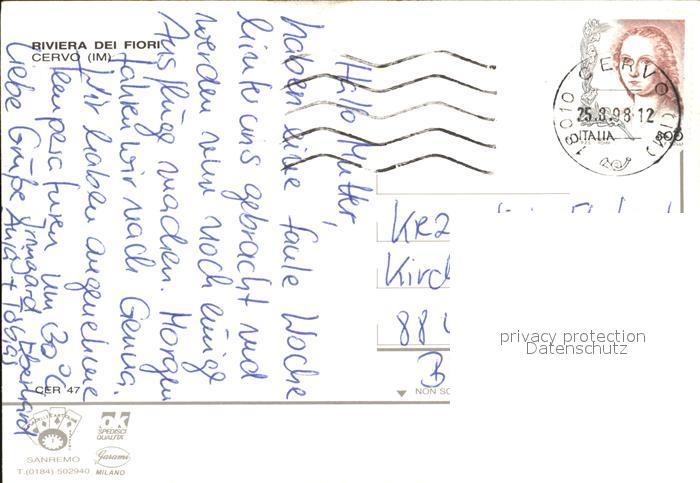 RIVIERA DEI FIORI
CERVO (IM)
Hallo Mutter,
haben eine faule Woche
hinter uns gebracht und
werden nun noch einige
Ausflüge machen. Morgen
fahren wir nach Genua.
Wir haben angenehme
Temperaturen um 30°C
Liebe Grüße Irmgard Eberhard
Anja +
18010 CERVO (IM)
25.8.98-12
ITALIA 800
KRZ
Kirc
88
B
privacy protection
Datenschutz
NON SC
CER 47
SANREMO
T.(0184) 502940
ok
SPEDISCI
QUALITA'
Garami
MILANO